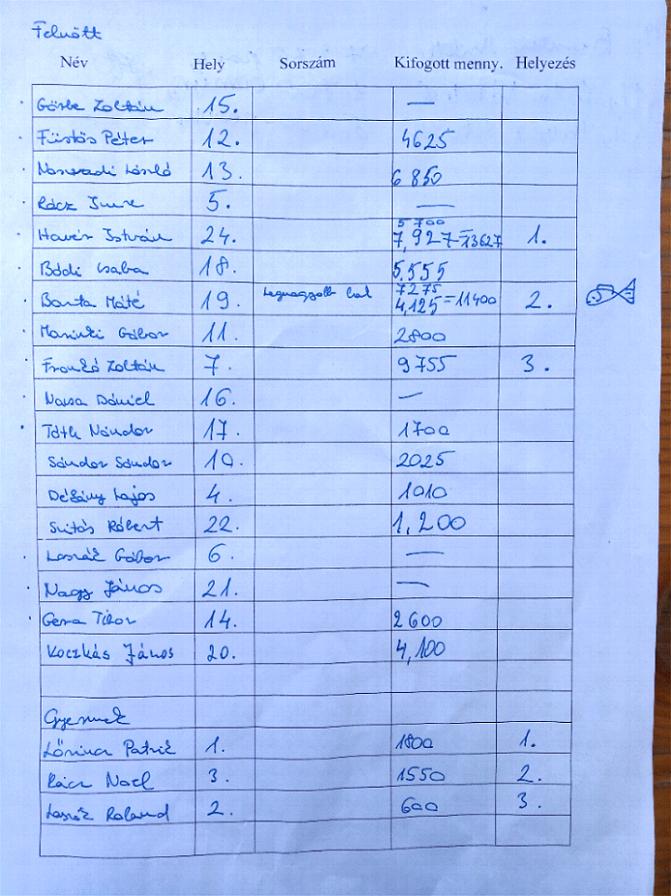 Felnőtt
Név Hely Sorszám Kifogott menny. Helyezés
Zoltán 15. —
Füstös Péter 12. 4625
László 13. 6850
Rácz Imre 5. —
István 24. 5700
7,927=13627 1.
Bódi Csaba 18. 5.555
Barta Máté 19. Legnagyobb hal 7275
4,125=11400 2.
Gábor 11. 2800
Frankó Zoltán 7. 9755 3.
Dániel 16. —
Tóth Nándor 17. 1700
Sándor Sándor 10. 2025
Lajos 4. 1010
Róbert 22. 1,200
Gábor 6. —
Nagy János 21. —
Gera Tibor 14. 2600
Koczkás János 20. 4,100
Gyermek
Lőrincz Patrik 1. 1800 1.
Rácz Noel 3. 1550 2.
Roland 2. 600 3.